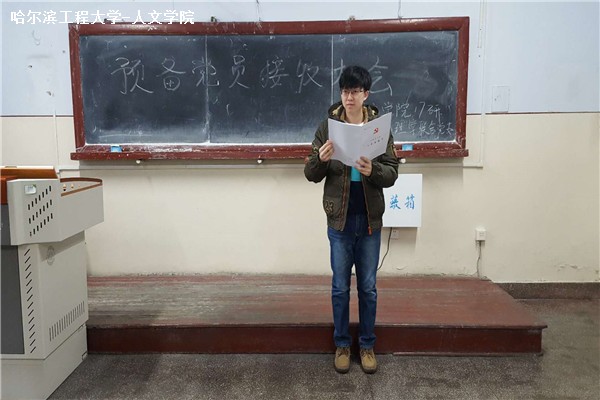 哈尔滨工程大学-人文学院
预备党员接收大会
学院17研
票箱